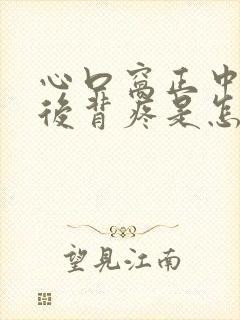 心口窝正中
後背疼是怎
望見江南